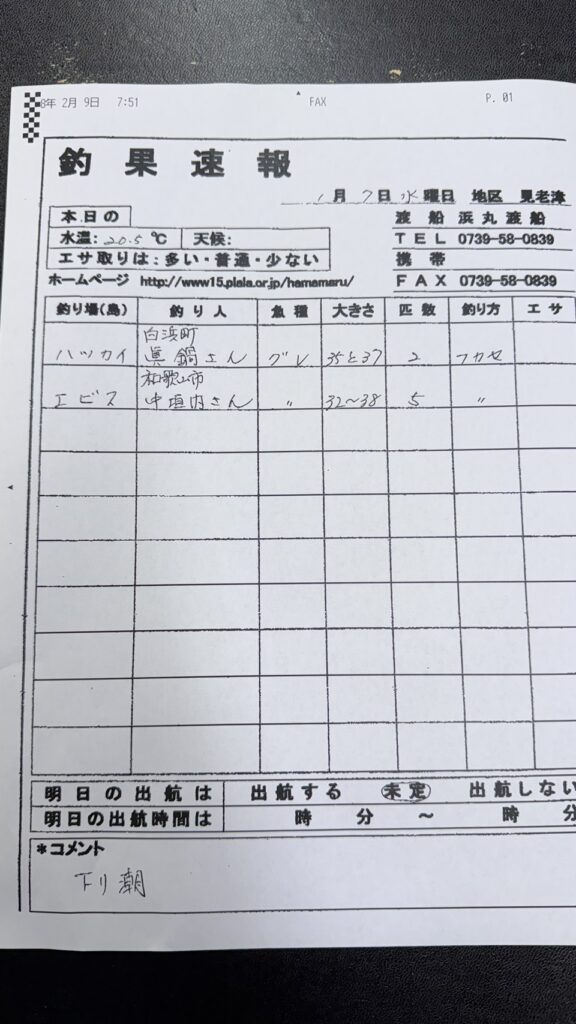 8年 2月 9日 7:51 FAX P. 01
釣果速報
1月7日水曜日 地区 見老津
本日の
渡船 浜丸渡船
水温:20.5℃ 天候:
TEL 0739-58-0839
エサ取りは:多い・普通・少ない
携帯
ホームページ http://www15.plala.or.jp/hamamaru/
FAX 0739-58-0839
釣り場(島) 釣り人 魚種 大きさ 匹数 釣り方 エサ
白浜町
ハツカイ 眞鍋さん グレ 35と37 2 フカセ
和歌山市
エビス 中垣内さん 〃 32〜38 5 〃
明日の出航は 出航する 未定 出航しない
明日の出航時間は 時 分 〜 時 分
*コメント
下り潮